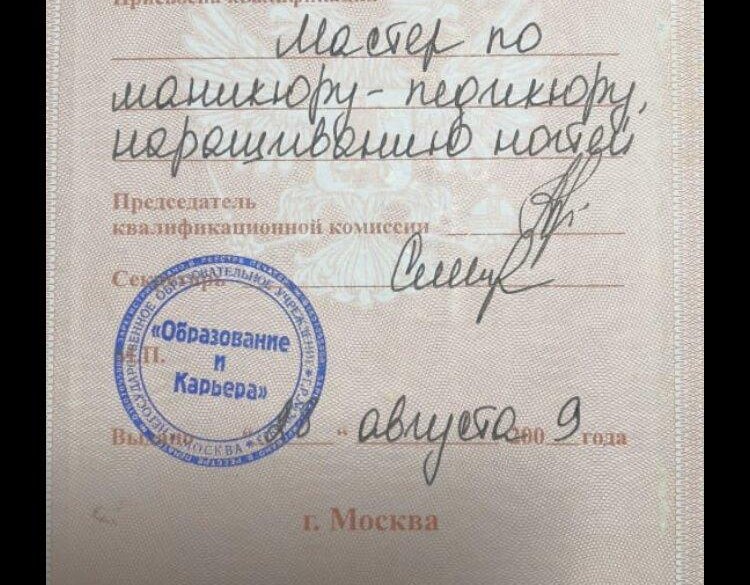 Присвоена квалификация
Мастер по
маникюру-педикюру,
наращиванию ногтей
Председатель
квалификационной комиссии
Секретарь
М.П.
НЕГОСУДАРСТВЕННОЕ ОБРАЗОВАТЕЛЬНОЕ УЧРЕЖДЕНИЕ
«Образование
и
Карьера»
МОСКВА
Выдано " " августа 2009 года
г. Москва